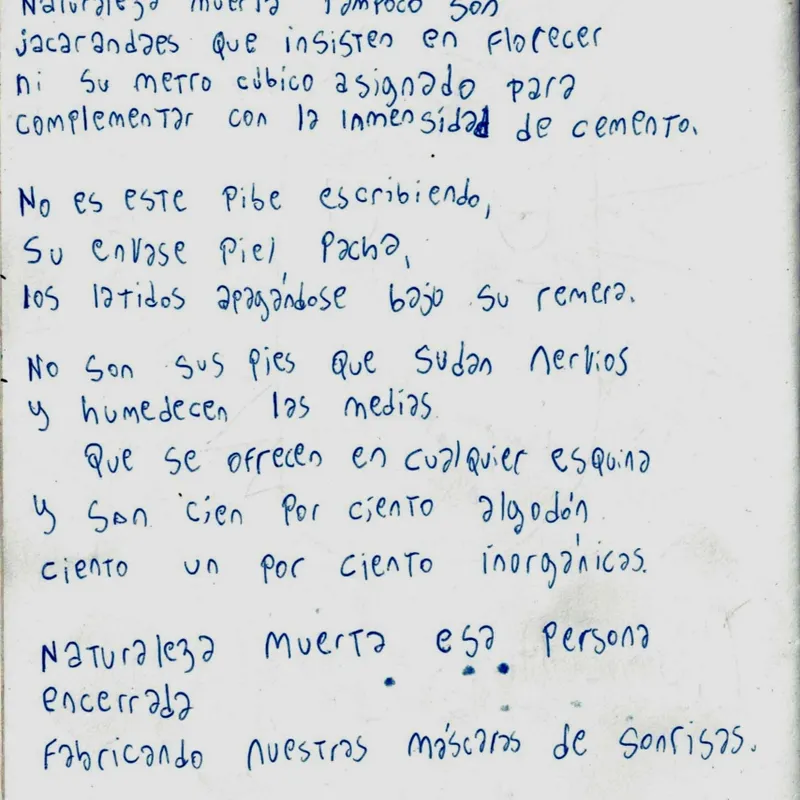 Naturaleza muerta tampoco son
jacarandaes que insisten en florecer
ni su metro cúbico asignado para
complementar con la inmensidad de cemento.
No es este pibe escribiendo,
su envase piel Pacha,
los latidos apagándose bajo su remera.
No son sus pies que sudan nervios
y humedecen las medias
que se ofrecen en cualquier esquina
y son cien por ciento algodón
ciento un por ciento inorgánicas.
Naturaleza muerta esa persona
encerrada
fabricando nuestras máscaras de sonrisas.